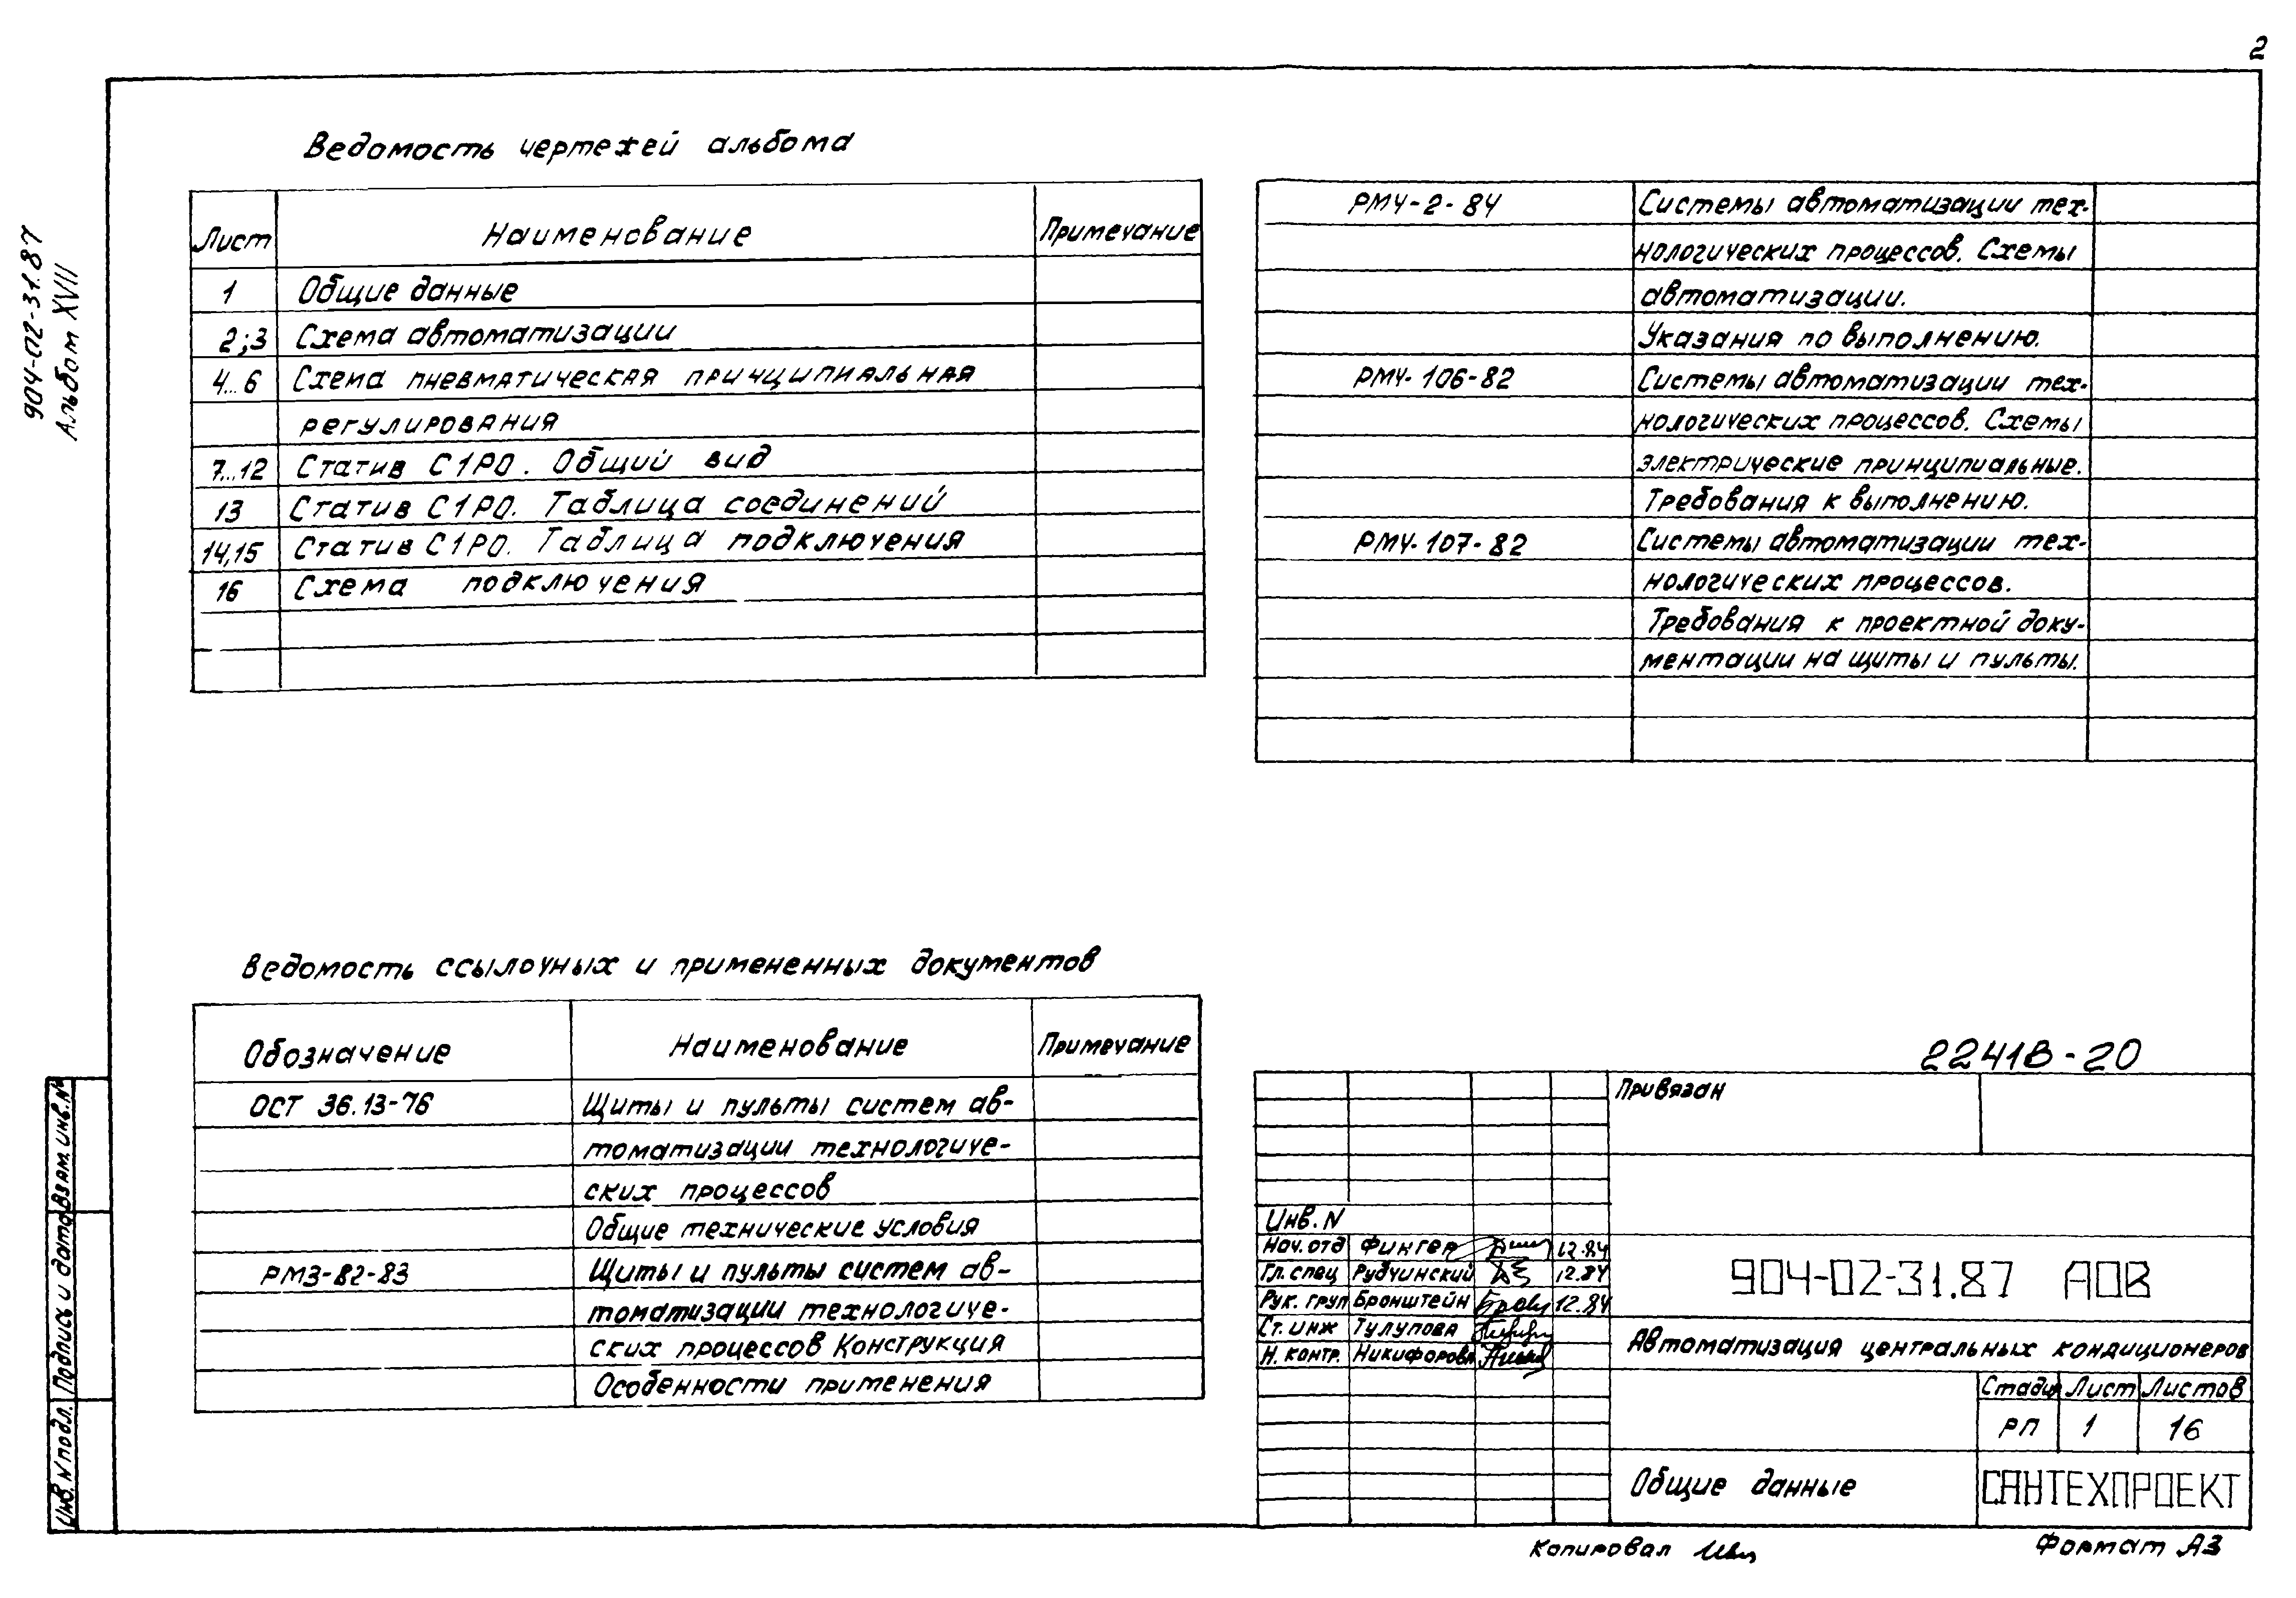 2
904-02-31.87
Альбом XVII
Ведомость чертежей альбома
Лист Наименование Примечание
1 Общие данные
2;3 Схема автоматизации
4...6 Схема пневматическая принципиальная
регулирования
7...12 Статив С1РО. Общий вид
13 Статив С1РО. Таблица соединений
14,15 Статив С1РО. Таблица подключения
16 Схема подключения
РМ4-2-84 Системы автоматизации тех-
нологических процессов. Схемы
автоматизации.
Указания по выполнению.
РМ4-106-82 Системы автоматизации тех-
нологических процессов. Схемы
электрические принципиальные.
Требования к выполнению.
РМ4-107-82 Системы автоматизации тех-
нологических процессов.
Требования к проектной доку-
ментации на щиты и пульты.
Ведомость ссылочных и примененных документов
Обозначение Наименование Примечание
ОСТ 36.13-76 Щиты и пульты систем ав-
томатизации технологиче-
ских процессов
Общие технические условия
РМ3-82-83 Щиты и пульты систем ав-
томатизации технологиче-
ских процессов Конструкция
Особенности применения
22418-20
Привязан
Инв. N
Нач. отд Фингер 12.84
Гл. спец Рубчинский 12.84
Рук. груп Бронштейн 12.84
Ст. инж Тулупова
Н. контр. Никифорова
904-02-31.87 АОВ
Автоматизация центральных кондиционеров
Стадия Лист Листов
РП 1 16
Общие данные
САНТЕХПРОЕКТ
Копировал
Формат А3
Взам. инв. №
Подпись и дата
Инв. N подл.